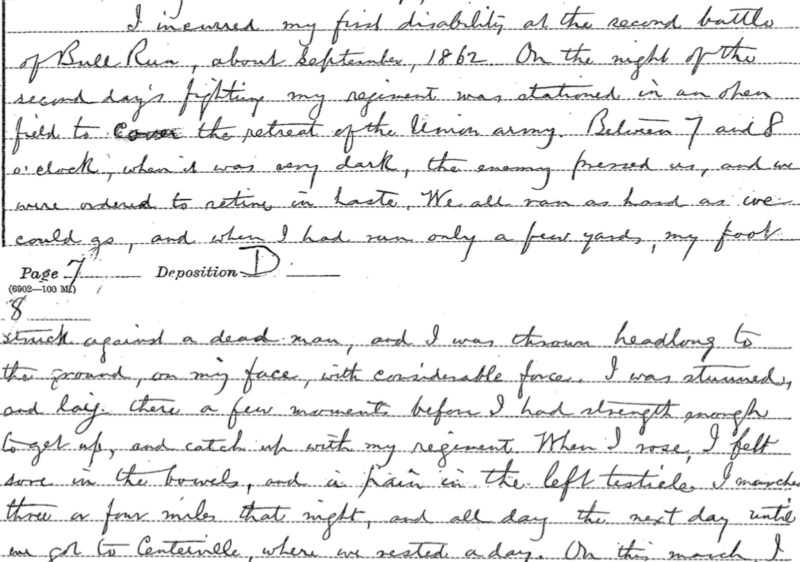 I incurred my first disability at the second battle
of Bull Run, about September, 1862. On the night of the
second day's fighting my regiment was stationed in an open
field to cover the retreat of the Union army. Between 7 and 8
o'clock, when it was very dark, the enemy pressed us, and we
were ordered to retire in haste. We all ran as hard as we
could go, and when I had run only a few yards, my foot
Page 7 Deposition D
(6902—100 M)
8
struck against a dead man, and I was thrown headlong to
the ground, on my face, with considerable force. I was stunned,
and lay there a few moments before I had strength enough
to get up, and catch up with my regiment. When I rose, I felt
sore in the bowels, and a pain in the left testicle. I marched
three or four miles that night, and all day the next day until
we got to Centerville, where we rested a day. On this march, I